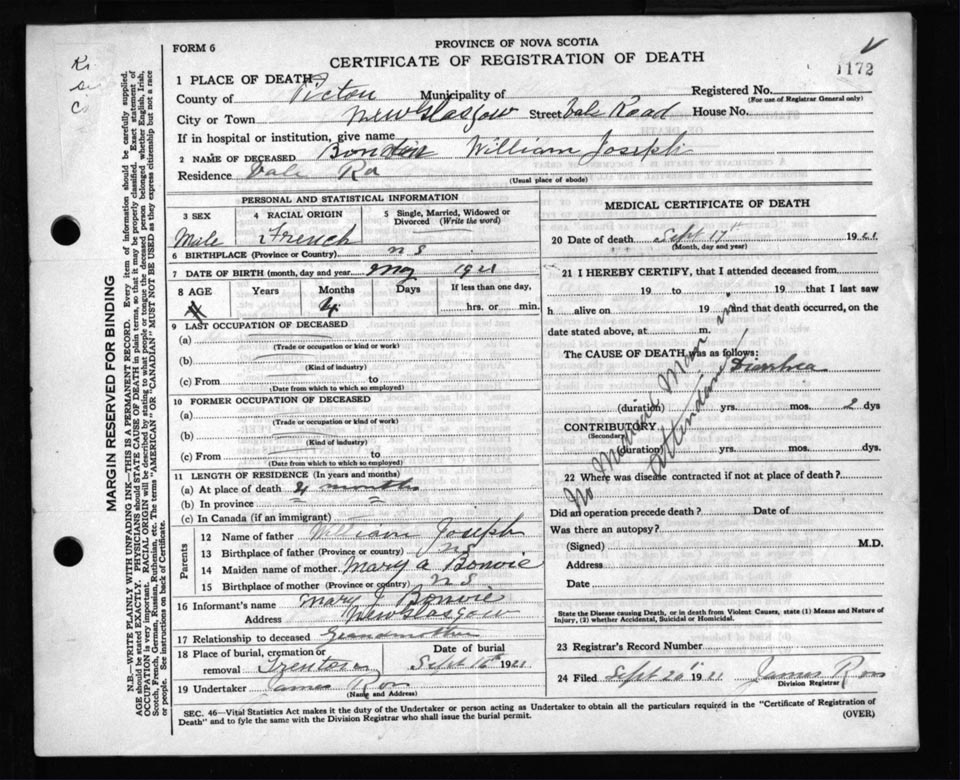 FORM 6
PROVINCE OF NOVA SCOTIA
CERTIFICATE OF REGISTRATION OF DEATH
1172
1 PLACE OF DEATH
County of Pictou Municipality of Registered No.
(For use of Registrar General only)
City or Town New Glasgow Street Vale Road House No.
If in hospital or institution, give name
2 NAME OF DECEASED William Joseph
Residence Vale Rd
(Usual place of abode)
PERSONAL AND STATISTICAL INFORMATION
3 SEX 4 RACIAL ORIGIN 5 Single, Married, Widowed or Divorced (Write the word)
Male French
6 BIRTHPLACE (Province or Country) n s
7 DATE OF BIRTH (month, day and year) May 1921
8 AGE Years Months Days If less than one day,
4 hrs. or min.
9 LAST OCCUPATION OF DECEASED
(a)
(Trade or occupation or kind or work)
(b)
(Kind of industry)
(c) From to
(Date from which to which so employed)
10 FORMER OCCUPATION OF DECEASED
(a)
(Trade or occupation or kind of work)
(b)
(Kind of industry)
(c) From to
(Date from which to which so employed)
11 LENGTH OF RESIDENCE (In years and months)
(a) At place of death 4 months
(b) In province " "
(c) In Canada (if an immigrant)
Parents
12 Name of father William Joseph
13 Birthplace of father (Province or country) n s
14 Maiden name of mother Mary A Bonvie
15 Birthplace of mother (Province or country) n s
16 Informant's name Mary J Bonvie
Address New Glasgow
17 Relationship to deceased Grandmother
18 Place of burial, cremation or removal Trenton Date of burial Sept 1921
19 Undertaker James
(Name and Address)
MEDICAL CERTIFICATE OF DEATH
20 Date of death Sept 17th 1921
(Month, day and year)
21 I HEREBY CERTIFY, that I attended deceased from
19 to 19 that I last saw
h alive on 19 and that death occurred, on the
date stated above, at m.
The CAUSE OF DEATH was as follows:
Diarrhea
No Medical Man in Attendance
(duration) yrs. mos. 2 dys
CONTRIBUTORY
(Secondary)
(duration) yrs. mos. dys
22 Where was disease contracted if not at place of death?
Did an operation precede death? Date of
Was there an autopsy?
(Signed) M.D.
Address
Date
State the Disease causing Death, or in death from Violent Causes, state (1) Means and Nature of
Injury, (2) whether Accidental, Suicidal or Homicidal.
23 Registrar's Record Number
24 Filed Sept 1921 James
Division Registrar
SEC. 46—Vital Statistics Act makes it the duty of the Undertaker or person acting as Undertaker to obtain all the particulars required in the "Certificate of Registration of
Death" and to fyle the same with the Division Registrar who shall issue the burial permit. (OVER)
MARGIN RESERVED FOR BINDING
N.B.—WRITE PLAINLY WITH UNFADING INK—THIS IS A PERMANENT RECORD. Every item of information should be carefully supplied.
AGE should be stated EXACTLY. PHYSICIANS should STATE CAUSE OF DEATH in plain terms, so that it may be properly classified. Exact statement of
OCCUPATION is very important. RACIAL ORIGIN will be described by stating to what people or tongue the deceased person belonged whether English, Irish,
Scotch, French, German, Russian, Ruthenian, etc. The terms "AMERICAN" OR "CANADIAN" MUST NOT BE USED as they express citizenship but not a race
or people. See instructions on back of Certificate.